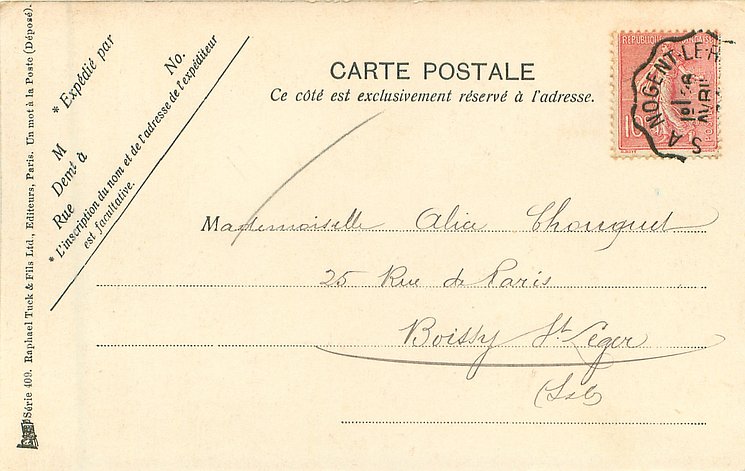 CARTE POSTALE
Ce côté est exclusivement réservé à l'adresse.
* Expédié par
No.
M
Demt à
Rue
* L'inscription du nom et de l'adresse de l'expéditeur
est facultative.
Mademoiselle Alice Chouquet
25 Rue de Paris
Boissy St Leger
Série 409. Raphael Tuck & Fils Ltd., Editeurs, Paris. Un mot à la Poste (Déposé).
NOGENT-LE-R
AVRIL
10